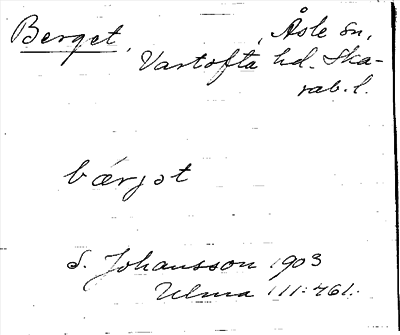 Berget, Åsle sn,
Vartofta hd. Ska-
rab. l.
bærjət
S. Johansson 1903
Ulma 111:461.